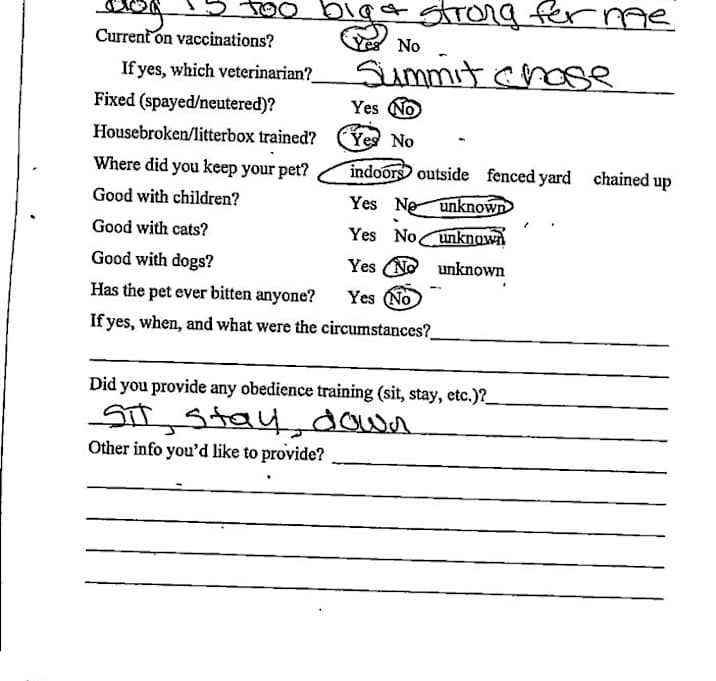 dog is too big & strong for me
Current on vaccinations? Yes No
If yes, which veterinarian? Summit chase
Fixed (spayed/neutered)? Yes No
Housebroken/litterbox trained? Yes No
Where did you keep your pet? indoors outside fenced yard chained up
Good with children? Yes No unknown
Good with cats? Yes No unknown
Good with dogs? Yes No unknown
Has the pet ever bitten anyone? Yes No
If yes, when, and what were the circumstances?
Did you provide any obedience training (sit, stay, etc.)?
sit, stay, down
Other info you'd like to provide?